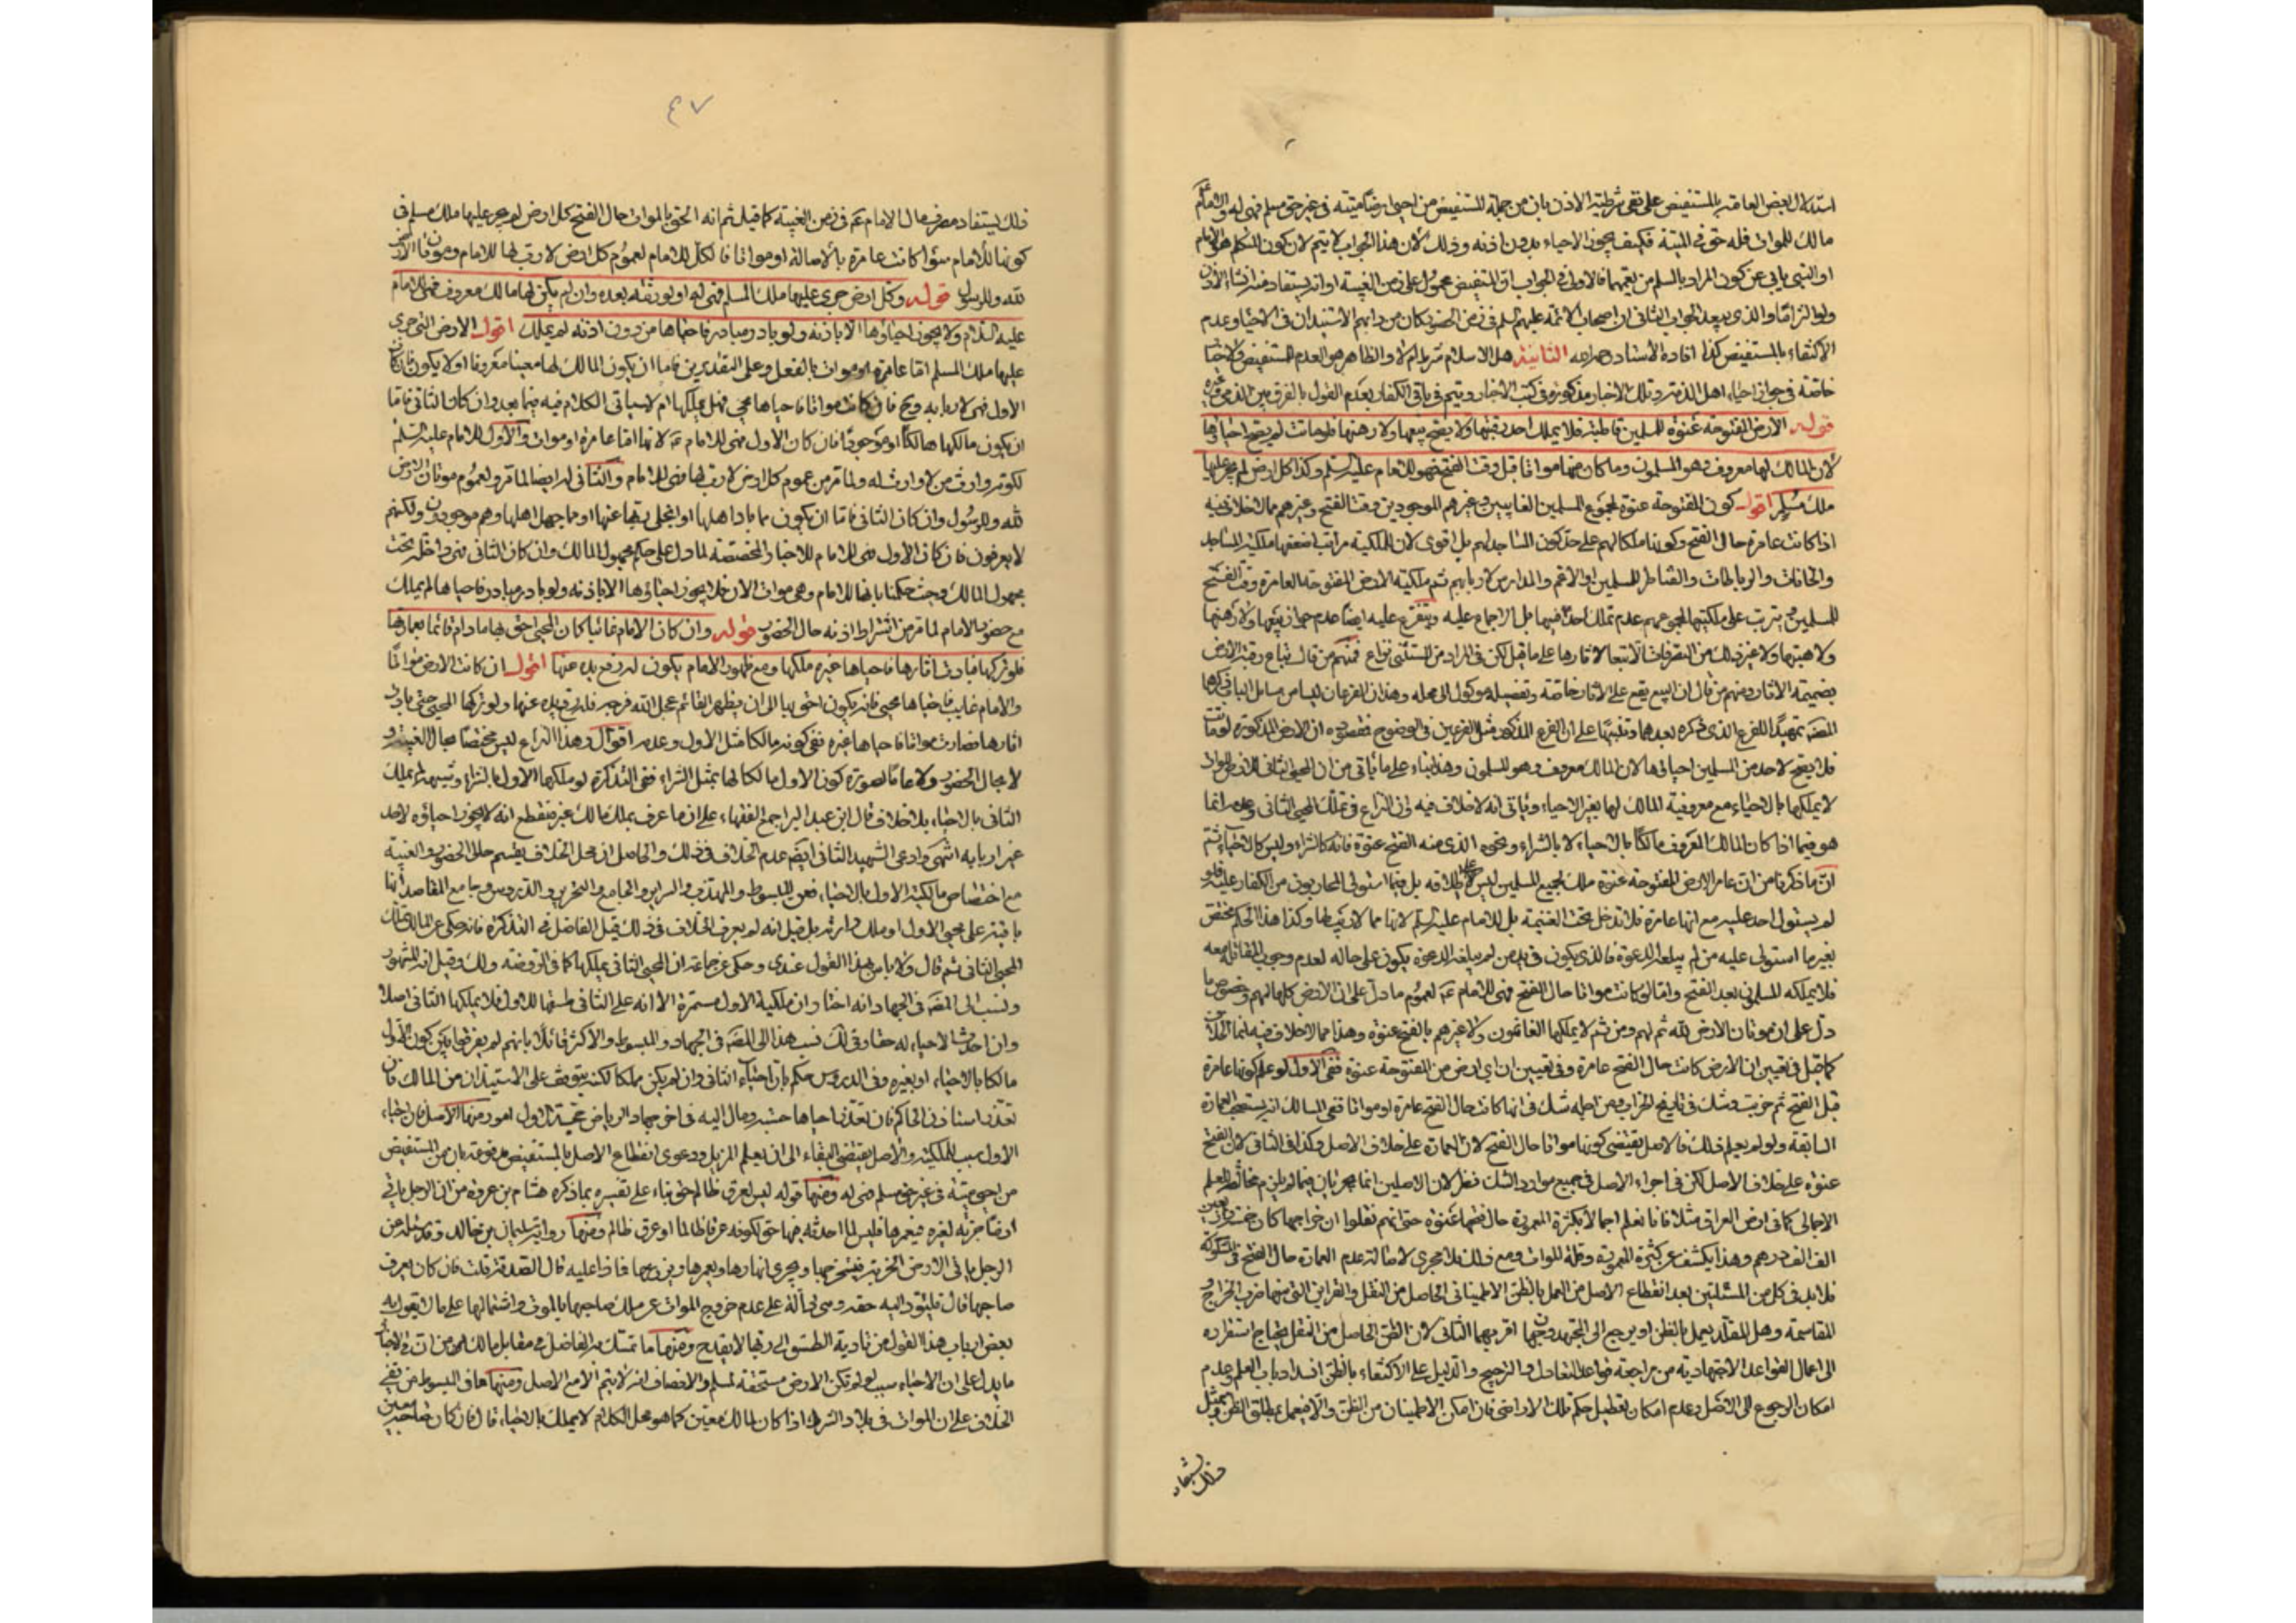 استدلال بعض العامة بالمستفيض على نفي شرطية الاذن بان من جملة المستفيض من احيى ارضا ميتة فى غير حق مسلم فهى له والامام
مالك للموات فله حق فى الميتة فكيف يجوز الاحياء بدون اذنه وذلك لان هذا الجواب لا يتم لان كون المتكلم هو الامام
او النبى يابى عن كون المراد بالمسلم من يعمهما فالاولى فى الجواب ان المستفيض محمول على زمن الغيبة او انه يستفاد منه انشاء الاذن
ولو التزاما والذى يبعد الجواب الثانى ان اصحاب الائمة عليهم السلم فى زمن الحضور كان من دابهم الاستيذان فى الاحياء وعدم
الاكتفاء بالمستفيض كذا افاده الاستاد الثانية هل الاسلام شرط ام لا والظاهر هو العدم للمستفيض ولاخبار
خاصة فى جواز احياء اهل الذمة وتلك الاخبار مذكورة فى كتب الاخبار ويتم فى باقى الكفار بعدم القول بالفرق بين الذمى وغيره
قوله الارض المفتوحة عنوة للمسلمين قاطبة فلا يملك احد رقبتها ولا يصح بيعها ولا رهنها فلو ماتت لم يصح احياؤها
لان المالك لها معروف وهو المسلمون وما كان منها مواتا قبل وقت الفتح فهو للامام عليه السلم وكذا كل ارض لم يجر عليها
ملك مسلم اقول كون المفتوحة عنوة لجميع المسلمين الغايبين وغيرهم الموجودين وقت الفتح وغيرهم مما لا خلاف فيه
اذا كانت عامرة حال الفتح وكونها ملكا لهم على حد كون المساجد لهم بل اقوى لان للملكية مراتب اضعفها ملكية المساجد
والخانات والرباطات والقناطر للمسلمين او الاعم والمدارس لاربابهم ثم ملكية الارض المفتوحة العامرة وقت الفتح
للمسلمين يترتب على ملكيتها لجميعهم عدم تملك احد فيها بل الاجماع عليه ويتفرع عليه ايضا عدم جواز بيعها ولا رهنها
ولا هبتها ولا غير ذلك من التصرفات الا تبعا لاثارها على ما قيل لكن فى المراد من المستثنى نزاع فمنهم من قال تباع رقبة الارض
بضميمة الاثار ومنهم من قال ان البيع يقع على الاثار خاصة وتفصيله موكول الى محله وهذان الفرعان ليسا من مسايل الباب ذكرهما
المصنف تمهيدا للفرع الذى ذكره بعدهما وتنبيها على ان الفرع المذكور مثل الفرعين فى الوضوح فمقصوده ان الارض المذكورة لو ماتت
فلا يصح لاحد من المسلمين احيائها لان المالك معروف وهو المسلمون وهذا بناء على ما ياتى من ان المحيى الثانى للارض الموات
لا يملكها بالاحياء مع معروفية المالك لها بغير الاحياء وياتى انه لا خلاف فيه وان النزاع فى تملك المحيى الثانى وعدمه انما
هو فيما اذا كان المالك المعروف مالكا بالاحياء لا بالشراء ونحوه الذى منه الفتح عنوة فانه كالشراء وليس كالاحياء ثم
ان ما ذكرنا من ان عامر الارض المفتوحة عنوة ملك لجميع المسلمين ليس على اطلاقه بل فيما استولى المحاربون من الكفار عليه فلو
لم يستول احد عليه مع انها عامرة فلا تدخل تحت الغنيمة بل للامام عليه السلم لانها مما لا رب لها وكذا هذا الحكم مختص
بغير ما استولى عليه من لم يبلغه الدعوة فالذى يكون فى يد من لم يبلغه الدعوة يكون على حاله لعدم وجوب المقاتلة معه
فلا يملكه المسلمون بعد الفتح وامّا لو كانت مواتا حال الفتح فهى للامام عم لعموم ما دل على ان الارض كلها لهم وخصوص ما
دل على ان موتان الارض لله ثم لهم ومن ثم لا يملكها الغانمون ولا غيرهم بالفتح عنوة وهذا مما لا خلاف فيه انما الخلاف
كما قيل فى تعيين ان الارض كانت حال الفتح عامرة وفى تعيين ان اى ارض من المفتوحة عنوة ففى الاول لو علم كونها عامرة
قبل الفتح ثم خربت وشك فى تاريخ الخراب ومن اجله شك فى انها كانت حال الفتح عامرة او مواتا ففى المسالك انه يستصحب العمارة
السابقة ولو لم يعلم ذلك فالاصل يقتضى كونها مواتا حال الفتح لان العمارة على خلاف الاصل وكذا فى الثانى لان الفتح
عنوة على خلاف الاصل لكن فى اجراء الاصل فى جميع موارد الشك نظر لان الاصلين انما يجريان فيما لم يلزم مخالفة العلم
الاجمالى كما فى ارض العراق مثلا فانا نعلم اجمالا بكثرة المعمورة حال فتحها عنوة حتى انهم نقلوا ان خراجها كان
الف الف درهم وهذا يكشف عن كثرة المعمورة وقلة الموات ومع ذلك فلا مجرى لاصالة عدم العمارة حال الفتح فى المشكوكة
فلا بد فى كل من المسئلتين بعد انقطاع الاصل من العمل بالظن الاطمينانى الحاصل من النقل والقراين التى منها ضرب الخراج و
المقاسمة وهل المقلد يعمل بالظن او يرجع الى المجتهد وجهان اقربهما الثانى لان الظن الحاصل من النقل يحتاج استقراره
الى اعمال القواعد الاجتهادية من مراجعة قواعد التعادل والترجيح والدليل على الاكتفاء بالظن انسداد باب العلم وعدم
امكان الرجوع الى الاصل وعدم امكان تعطيل حكم تلك الاراضى فان امكن الاطمينان من الظن والا فيعمل بمطلق الظن وبمثل
ذلك يستفاد
٤٧
ذلك يستفاد مصرف مال الامام عم فى زمن الغيبة كما قيل ثم انه الحق بالموات حال الفتح كل ارض لم يجر عليها ملك مسلم فى
كونها للامام سواء كانت عامرة بالاصالة او مواتا فالكل للامام لعموم كل ارض لا رب لها للامام وموتان الارض
لله وللرسول قوله وكل ارض جرى عليها ملك المسلم فهى له او لورثته بعده وان لم يكن لها مالك معروف فهى للامام
عليه السلام ولا يجوز احياؤها الا باذنه ولو بادر مبادر فاحياها من دون اذنه لم يملك اقول الارض التى جرى
عليها ملك المسلم اما عامرة او موات بالفعل وعلى التقديرين فاما ان يكون المالك لها معينا معروفا او لا يكون فان كان
الاول فهى لاربابه وح فان كانت مواتا فاحياها محيى فهل يملكها ام لا سياتى الكلام فيه فيما بعد وان كان الثانى فاما
ان يكون مالكها هالكا او موجودا فان كان الاول فهى للامام عم لانها اما عامرة او موات والاول للامام عليه السلم
لكونه وارث من لا وارث له ولما مر من عموم كل ارض لا رب لها فهى للامام والثانى له ايضا لما مر ولعموم موتان الارض
لله وللرسول وان كان الثانى فاما ان يكون مما باد اهلها او انجلى ربها عنها او مما جهل اهلها وهم موجودون ولكنهم
لا يعرفون فان كان الاول فهى للامام للاخبار المخصصة لما دل على حكم مجهول المالك وان كان الثانى فهى داخلة تحت
مجهول المالك وحيث حكمنا بانها للامام وهى موات الان فلا يجوز احيائها الا باذنه ولو بادر مبادر فاحياها لم يملك
مع حضور الامام لما مر من اشتراط اذنه حال الحضور قوله وان كان الامام غائبا كان المحيى احق بها مادام قائما بعمارتها
فلو تركها فبادت اثارها فاحياها غيره ملكها ومع ظهور الامام يكون له رفع يده عنها اقول ان كانت الارض مواتا
والامام غايب فاحياها محيى فانه يكون احق بها الى ان يظهر القائم عجل الله فرجه فله رفع يده عنها ولو تركها المحيى حتى بادت
اثارها فصارت مواتا فاحياها غيره ففى كونه مالكا مثل الاول وعدمه اقوال وهذا النزاع ليس مختصا بحال الغيبة و
لا بحال الحضور ولا عاما لصورة كون الاول مالكا لها بمثل الشراء ففى التذكرة لو ملكها الاول بالشراء وشبهه لم يملك
الثانى بالاحياء بلا خلاف قال ابن عبد البر اجمع الفقهاء على ان ما عرف بملك مالك غير منقطع انه لا يجوز احياؤه لاحد
غير اربابه انتهى وادعى الشهيد الثانى ايضا عدم الخلاف فى ذلك والحاصل ان محل الخلاف يعم حال الحضور والغيبة
مع اختصاص مالكية الاول بالاحياء فعن المبسوط والمهذب والسراير والجامع والتحرير والدروس وجامع المقاصد انها
باقية على محيى الاول او ملك وارثه بل قيل انه لم يعرف الخلاف فى ذلك قبل الفاضل فى التذكرة فانه حكى عن مالك تملك
المحيى الثانى ثم قال ولا باس بهذا القول عندى وحكى عن جماعة ان المحيى الثانى يملكها كما فى الروضة ولك وقيل انه المشهور
ونسب الى المصنف فى الجهاد انه اختار ان ملكية الاول مستمرة الا انه على الثانى طسقها للاول فلا يملكها الثانى اصلا
وان احدث الاحياء له حقا وفى لك نسب هذا الى المصنف فى الجهاد والمبسوط والاكثر قائلا بانهم لم يفرقوا بين كون الاول
مالكا بالاحياء او بغيره وفى الدروس حكم بان احياء الثانى وان لم يكن مملكا لكنه يتوقف على الاستيذان من المالك فان
تعذر استاذن الحاكم فان تعذر احياها حسبة ومال اليه فى اخر جهاد الرياض حجة الاول امور منها الاصل فان احياء
الاول سبب للملكية والاصل يقتضى البقاء الى ان يعلم المزيل ودعوى انقطاع الاصل بالمستفيض مدفوعة بان من المستفيض
من احيى ميتة فى غير حق مسلم فهى له ومنها قوله ليس لعرق ظالم حق بناء على تفسيره بما ذكره هشام بن عروة من ان الرجل ياتى
ارضا خربة لغيره فيعمرها فليس لما احدثه فيها حق لكونه عرقا ظالما او عرق ظالم ومنها رواية سليمان بن خالد وقد سئل عن
الرجل ياتى الارض الخربة فيستخرجها ويجرى انهارها ويعمرها ويزرعها فماذا عليه قال الصدقة قلت فان كان يعرف
صاحبها قال فليؤد اليه حقه وهى دالة على عدم خروج الموات عن ملك صاحبها بالموت واشتمالها على ما لا يقول به
بعض ارباب هذا القول من تادية الطسق الى ربها لا يقدح ومنها ما تمسك به الفاضل فى مقابل مالك من ان فى الاخبار
ما يدل على ان الاحياء سبب لو لم تكن الارض مستحقة لمسلم والانصاف انه لا يتم الا مع الاصل ومنها ما فى المبسوط من نفى
الخلاف على ان الموات فى بلاد الشرك اذا كان لمالك معين كما هو محل الكلام لا يملك بالاحياء قال فان كان صاحبه معين